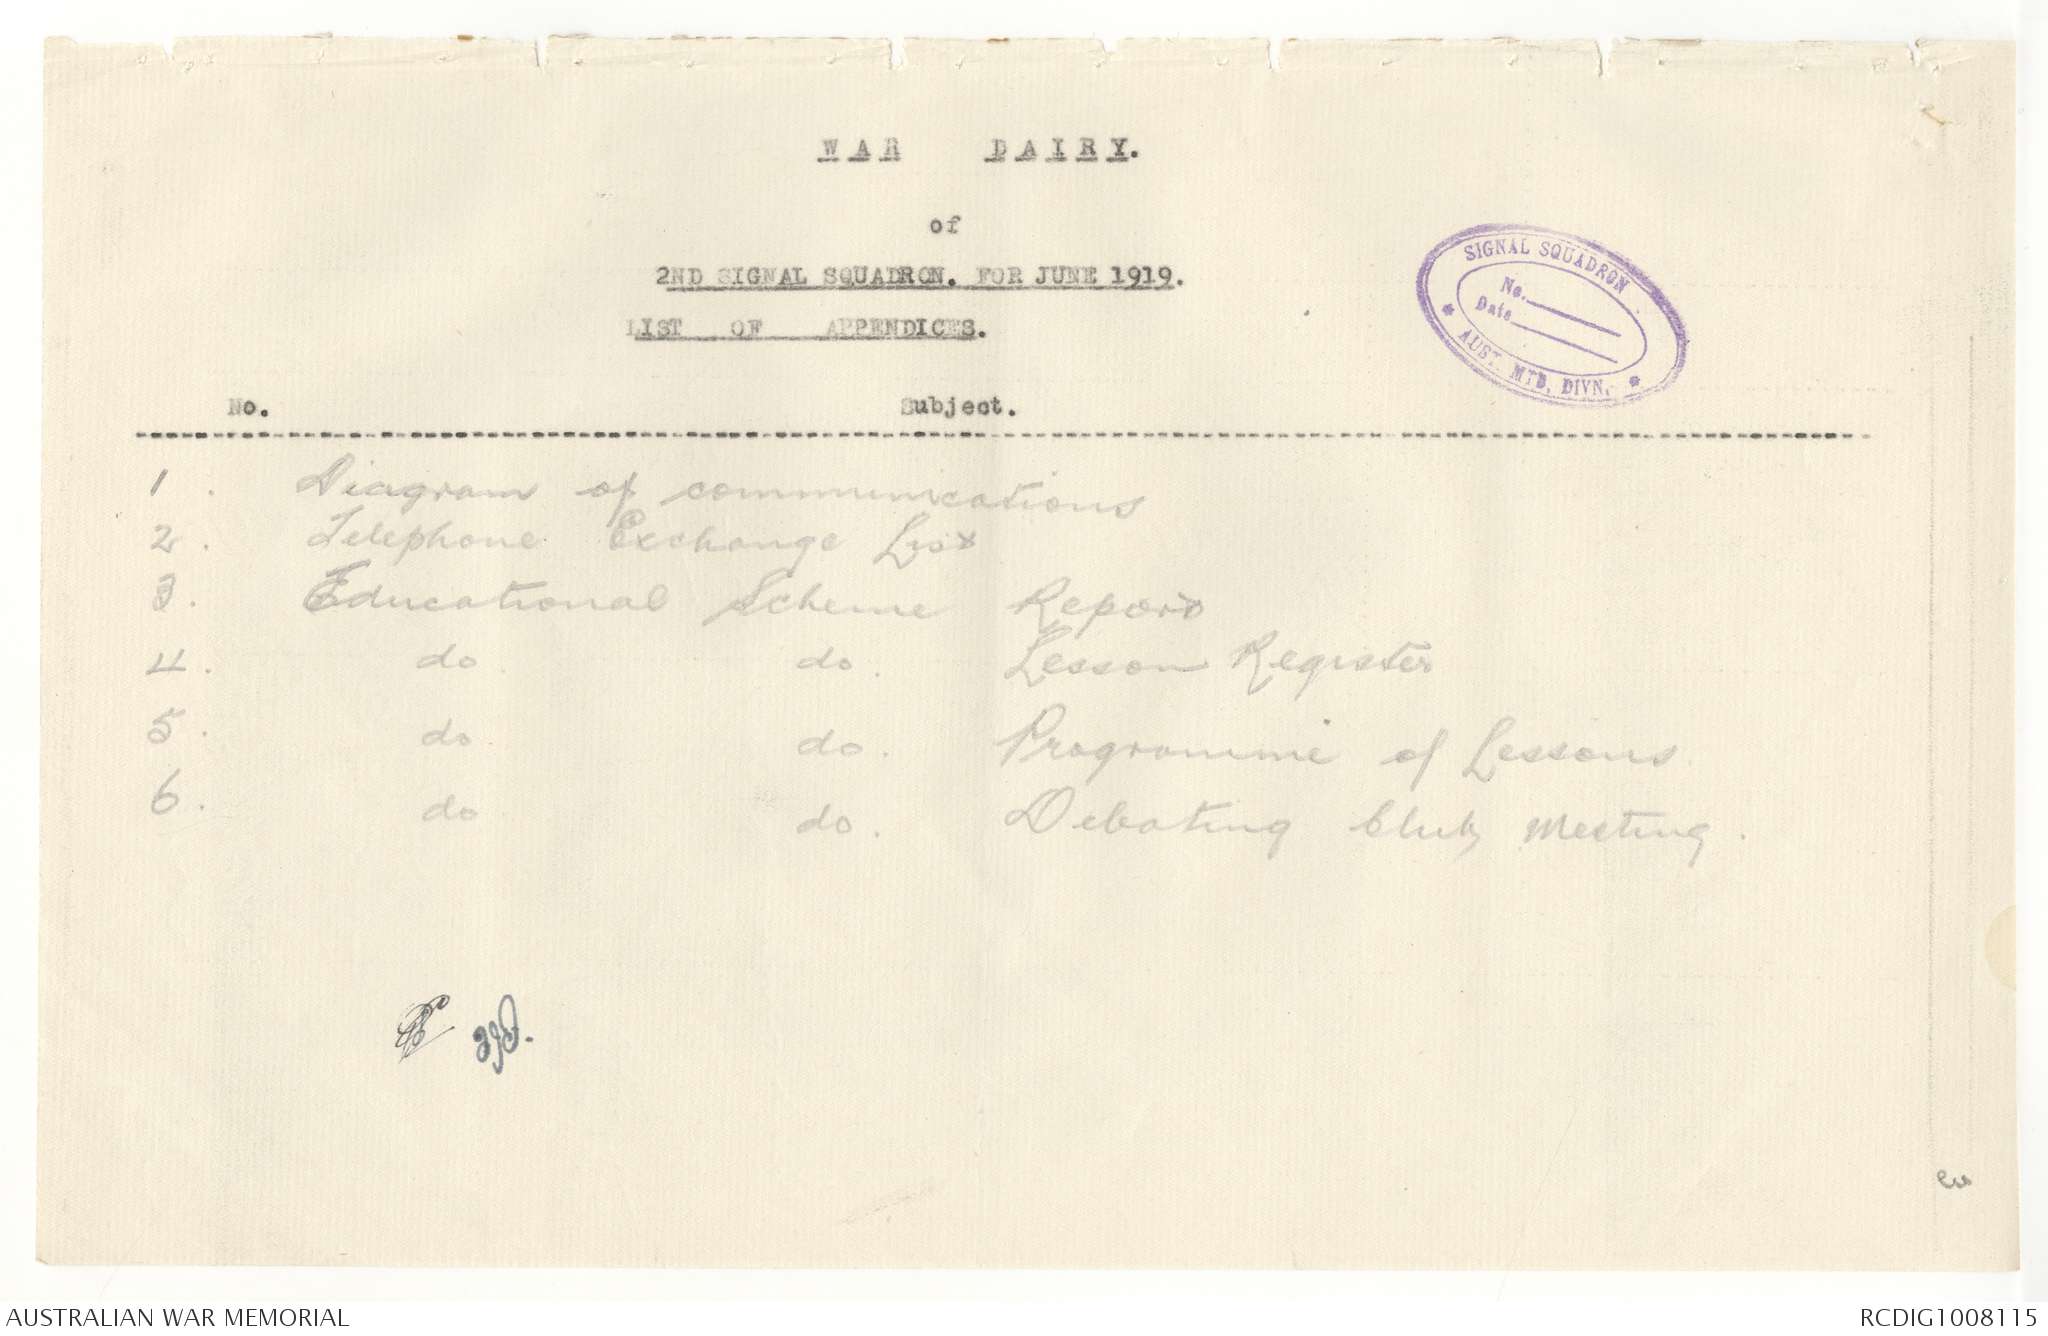 WAR DAIRY.
of
2ND SIGNAL SQUADRON. FOR JUNE 1919.
LIST OF APPENDICES.
SIGNAL SQUADRON
No.
Date
* AUST. MTD. DIVN. *
No. Subject.
1. Diagram of communications
2. Telephone Exchange List
3. Educational Scheme Report
4. do. do. Lesson Register
5. do. do. Programme of Lessons
6. do. do. Debating Club Meeting.
AUSTRALIAN WAR MEMORIAL RCDIG1008115